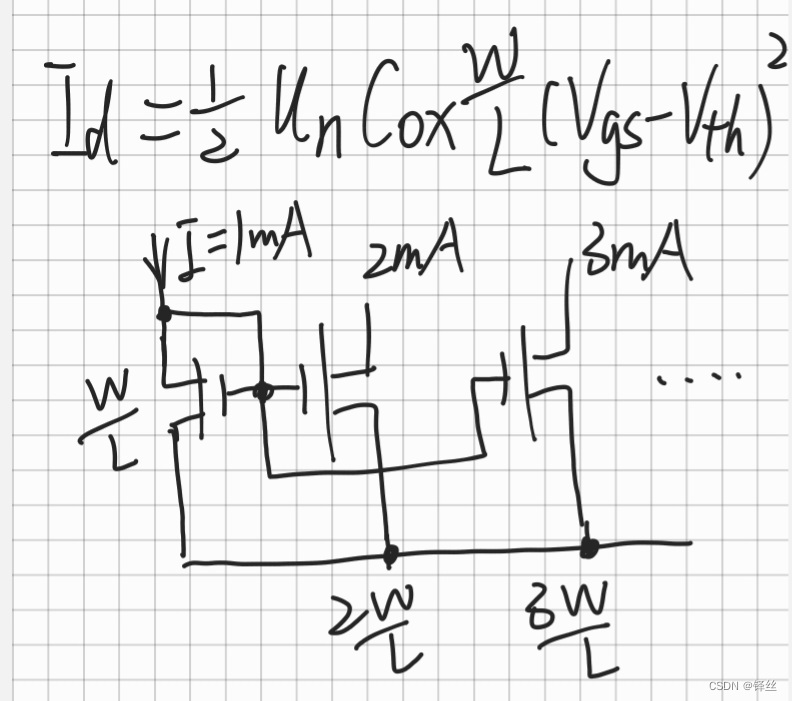 Id = 1/2 Un Cox W/L (Vgs - Vth)²
I = 1mA
2mA
3mA
W/L
.....
2 W/L
3 W/L
CSDN @铎丝